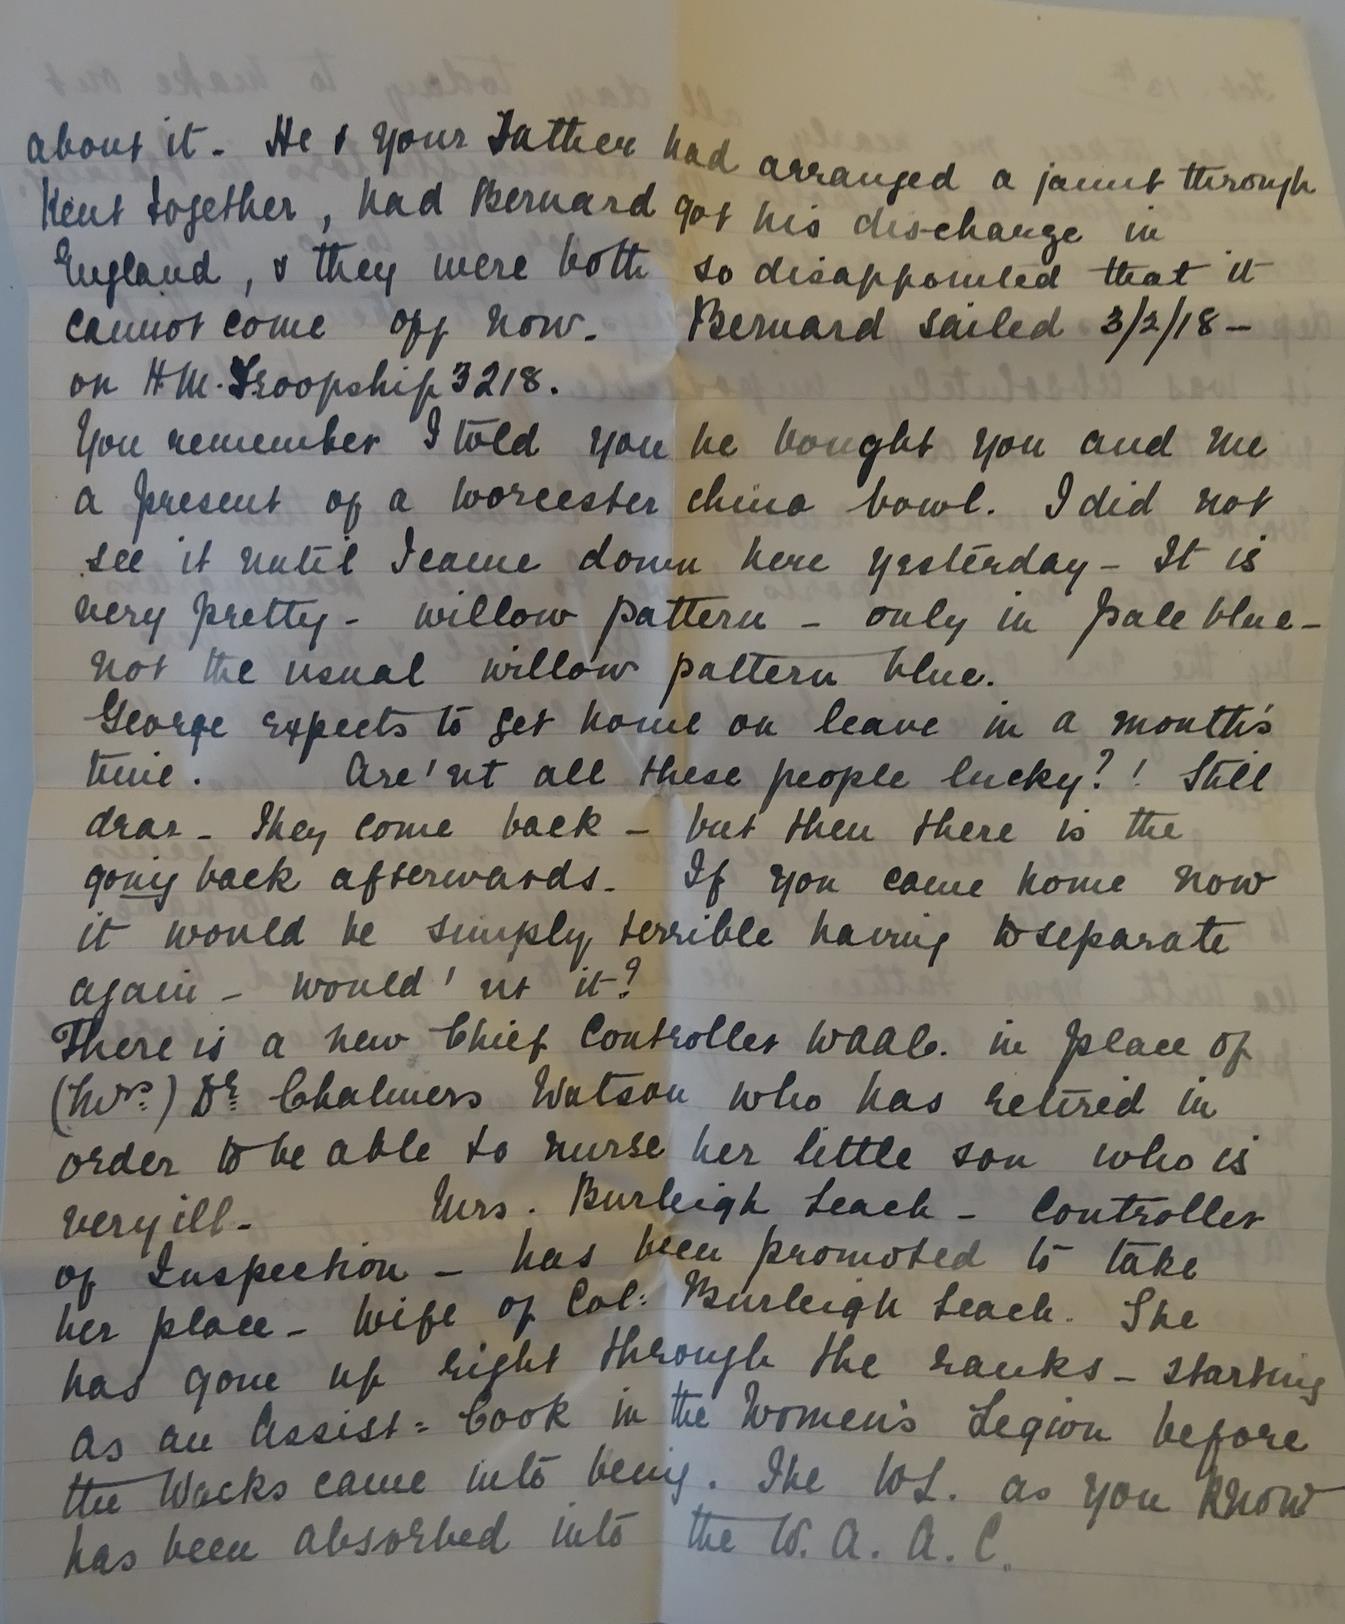 about it - He & your Father had arranged a jaunt through
Kent together, had Bernard got his discharge in
England, & they were both so disappointed that it
cannot come off now. Bernard sailed 3/2/18 -
on H.M. Troopship 3218.
You remember I told you he bought you and me
a present of a Worcester china bowl. I did not
see it until I came down here yesterday - It is
very pretty - willow pattern - only in pale blue -
not the usual willow pattern blue.
George expects to get home on leave in a month's
time. Are'nt all these people lucky?! Still
dear - They come back - but then there is the
going back afterwards. If you came home now
it would be simply terrible having to separate
again - would'nt it?
There is a new Chief Controller WAAC. in place of
(Mrs:) Dr: Chalmers Watson who has retired in
order to be able to nurse her little son who is
very ill - Mrs. Burleigh Leach - Controller
of Inspection - has been promoted to take
her place - Wife of Col: Burleigh Leach. She
has gone up right through the ranks - starting
as an Assist: Cook in the Women's Legion before
the Wacks came into being. The WL. as you know
has been absorbed into the W.A.A.C.